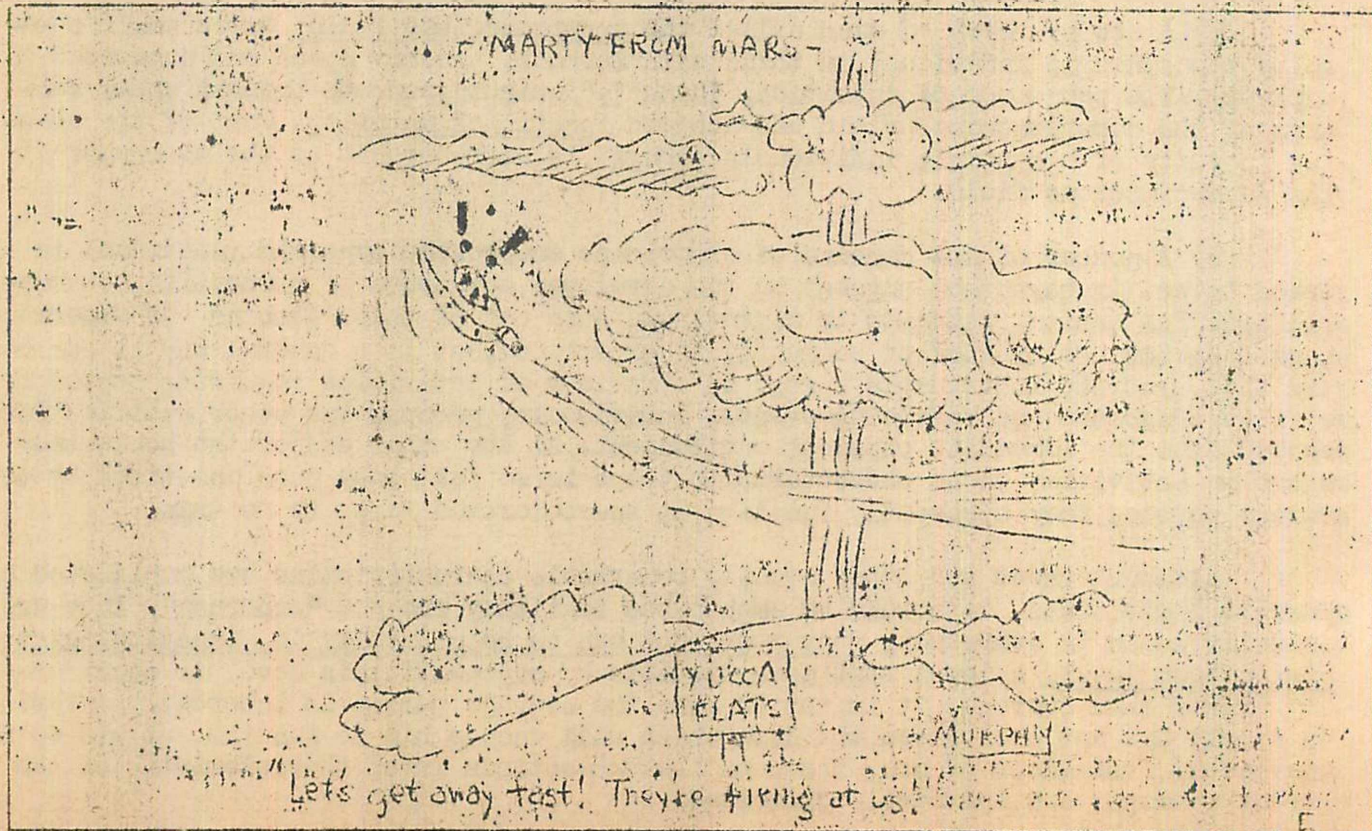 - MARTY FROM MARS -
! !
YUCCA
FLATS
MURPHY
"Lets get away fast! They're firing at us!